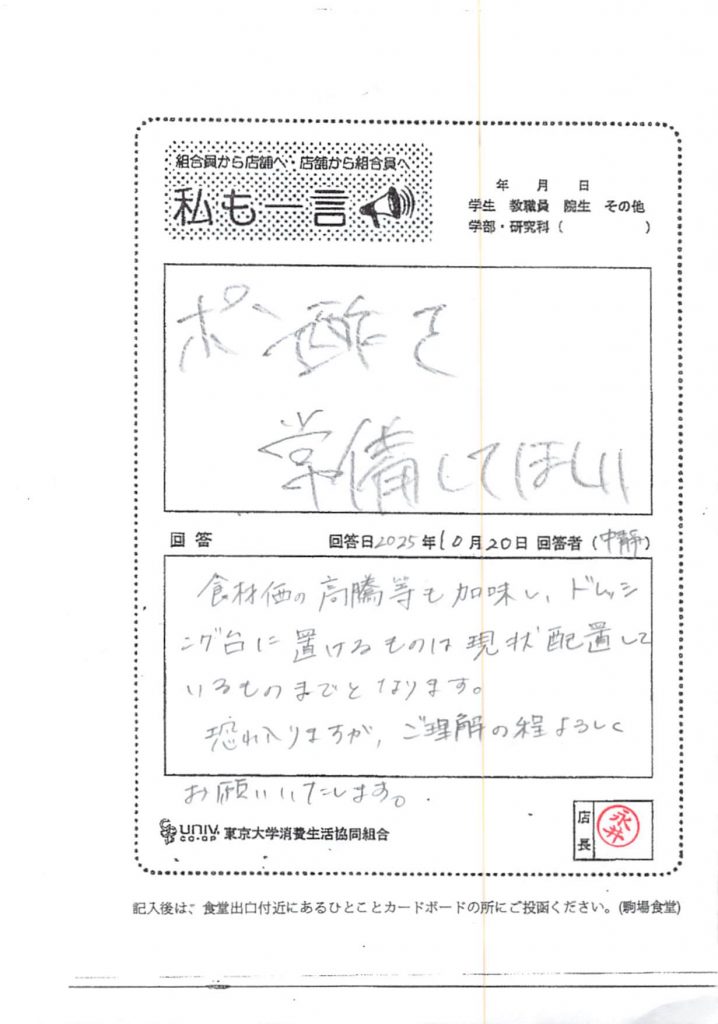 組合員から店舗へ・店舗から組合員へ
私も一言
年 月 日
学生 教職員 院生 その他
学部・研究科 ( )
ポン酢を
常備してほしい
回答 回答日2025年10月20日 回答者(中静)
食材価の高騰等も加味し、ドレッシ
ング台に置けるものは現状配置して
いるものまでとなります。
恐れ入りますが、ご理解の程よろしく
お願いいたします。
UNIV. CO-OP 東京大学消費生活協同組合
店長 永井
記入後は、食堂出口付近にあるひとことカードボードの所にご投函ください。(駒場食堂)